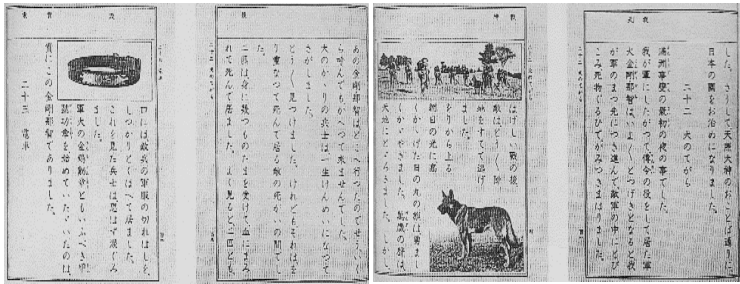 した。さうして天照大神のおことば通り、
日本の國をお治めになりました。
二十二 犬のてがら
滿洲事變の最初の夜の事でした。
我が軍にしたがつて傳令の役をして居た軍
犬金剛・那智は、いよ〱とつげきとなると、我
が軍のまつ先につき進んで、敵軍の中にとび
こみ、死物ぐるひでかみつきまはりました。
はげしい戰の後、
敵はとう〱陣
地をすてて逃げ
ました。
をりから上る
朝日の光に、高
くかゝげた日の丸の旗は勇まし
くかゞやきました。萬歳の聲は、
天地にとゞろきました。しかし、
あの金剛・那智はどこへ行つたのでせう。いく
ら呼んでもかへつて來ませんでした。
犬のかゝりの兵士は、一生けんめいになつて
さがしました。
とう〱見つけました。けれども、それは、を
り重なつて死んで居る敵の死がいの間でし
た。
二匹は、身に幾つものたまを受けて、血にまみ
れて死んで居ました。よく見ると、二匹とも、
口には敵兵の軍服の切れはしを、
しつかりとくはへて居ました。
これを見た兵士は、思はず涙ぐみ
ました。
軍犬の金鵄勳章ともいふべき甲
號功章を始めていたゞいたのは、
實にこの金剛・那智でありました。
二十三